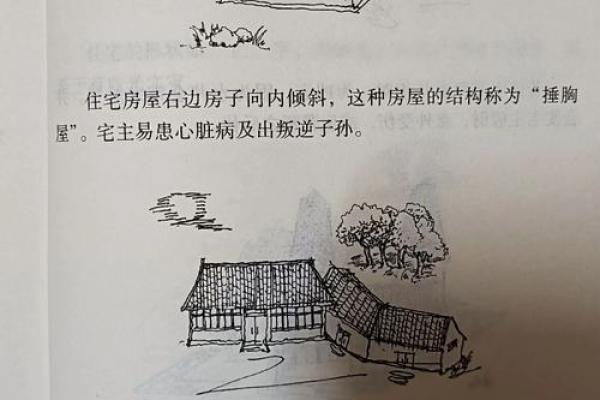 住宅房屋右边房子向内倾斜，这种房屋的结构称为“捶胸
屋”。宅主易患心脏病及出叛逆子孙。